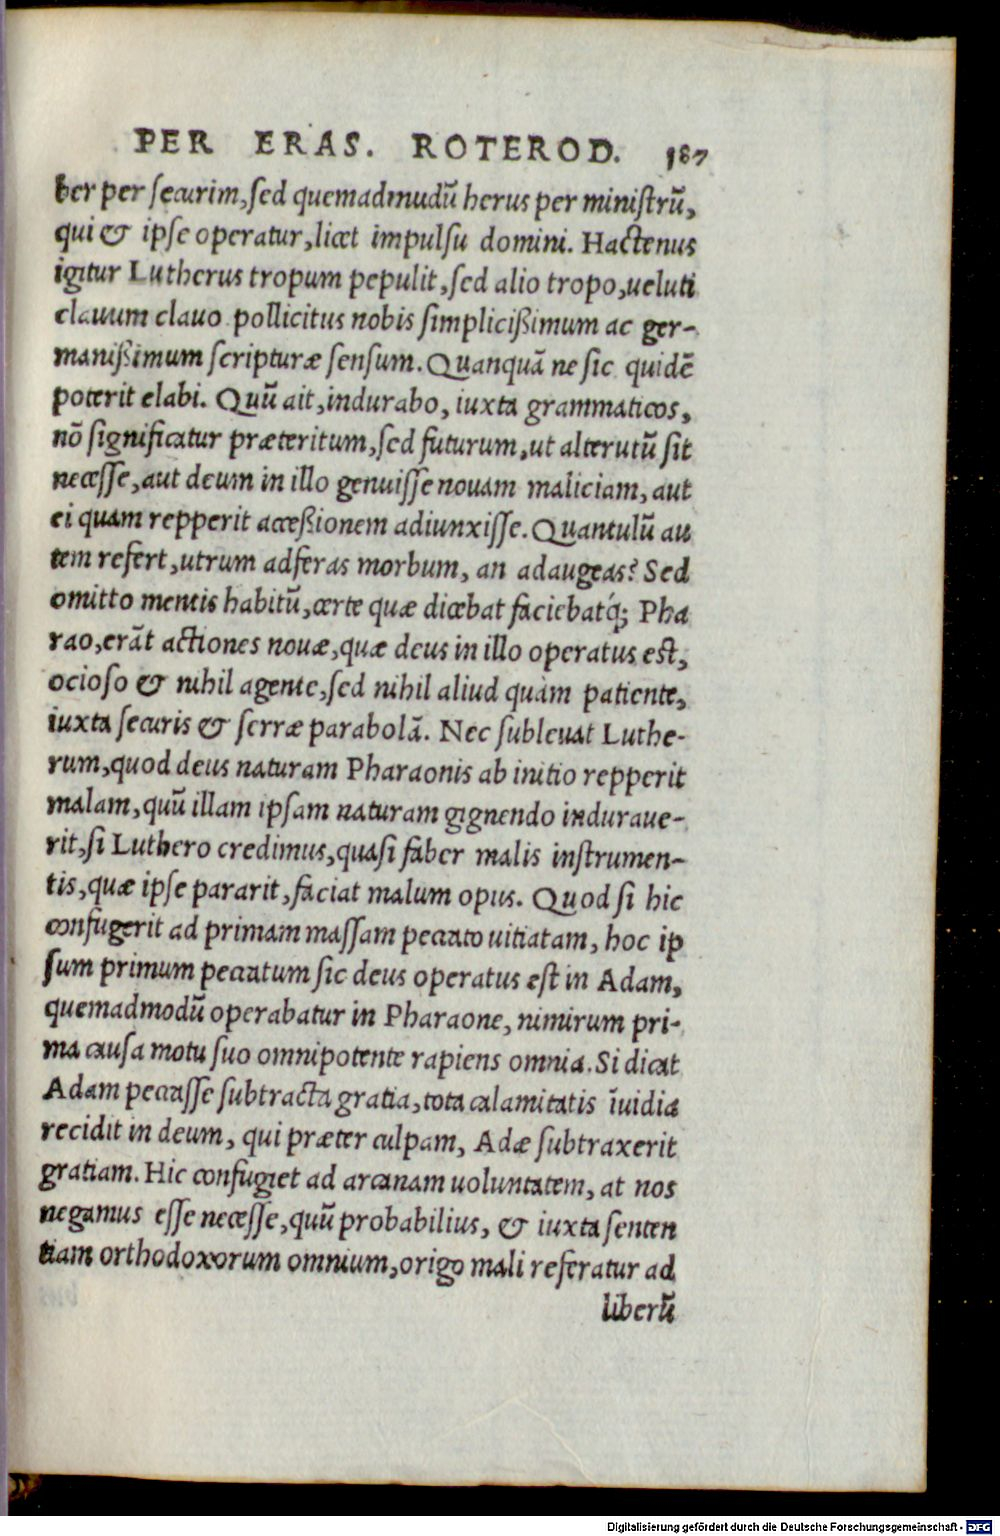 PER ERAS. ROTEROD. 187
ber per securim, sed quemadmudū herus per ministrū,
qui & ipse operatur, licet impulsu domini. Hactenus
igitur Lutherus tropum pepulit, sed alio tropo, ueluti
clauum clauo pollicitus nobis simplicißimum ac ger-
manißimum scripturæ sensum. Quanquā ne sic quidē
poterit elabi. Quū ait, indurabo, iuxta grammaticos,
nō significatur præteritum, sed futurum, ut alterutū sit
necesse, aut deum in illo genuisse nouam maliciam, aut
ei quam repperit acceßionem adiunxisse. Quantulū au
tem refert, utrum adferas morbum, an adaugeas? Sed
omitto mentis habitū, certe quæ dicebat faciebatq́; Pha
rao, erāt actiones nouæ, quæ deus in illo operatus est,
ocioso & nihil agente, sed nihil aliud quàm patiente,
iuxta securis & serræ parabolā. Nec subleuat Luthe-
rum, quod deus naturam Pharaonis ab initio repperit
malam, quū illam ipsam naturam gignendo induraue-
rit, si Luthero credimus, quasi faber malis instrumen-
tis, quæ ipse pararit, faciat malum opus. Quod si hic
confugerit ad primam massam peccato uitiatam, hoc ip
sum primum peccatum sic deus operatus est in Adam,
quemadmodū operabatur in Pharaone, nimirum pri-
ma causa motu suo omnipotente rapiens omnia. Si dicat
Adam peccasse subtracta gratia, tota calamitatis īuidia
recidit in deum, qui præter culpam, Adæ subtraxerit
gratiam. Hic confugiet ad arcanam uoluntatem, at nos
negamus esse necesse, quū probabilius, & iuxta senten
tiam orthodoxorum omnium, origo mali referatur ad
liberū
Digitalisierung gefördert durch die Deutsche Forschungsgemeinschaft - DFG